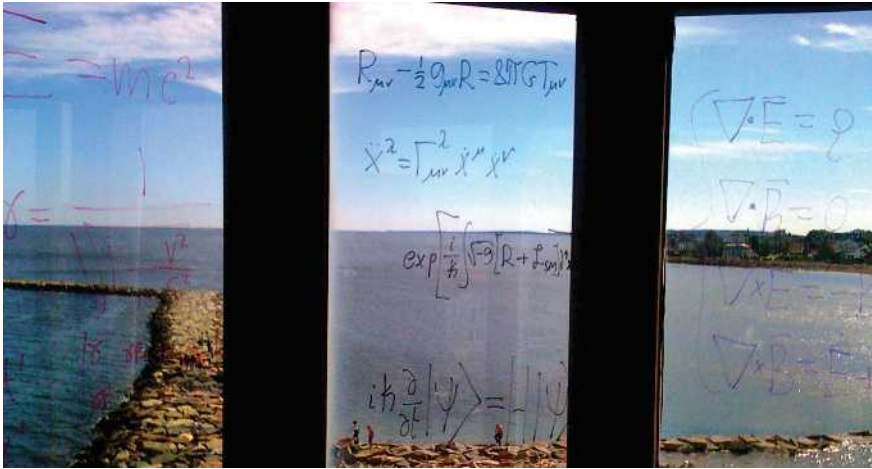 E = mc²
γ = 1 / √(1 - v²/c²)
R_μν - ½ g_μν R = 8πG T_μν
ẍ^λ = Γ^λ_μν ẋ^μ ẋ^ν
exp[i/ħ ∫√-g [R + ℒ_SM] d⁴x
iħ ∂/∂t |Ψ⟩ = H |Ψ⟩
∇·E = ρ
∇·B = 0
∇×E = -
∇×B = E +